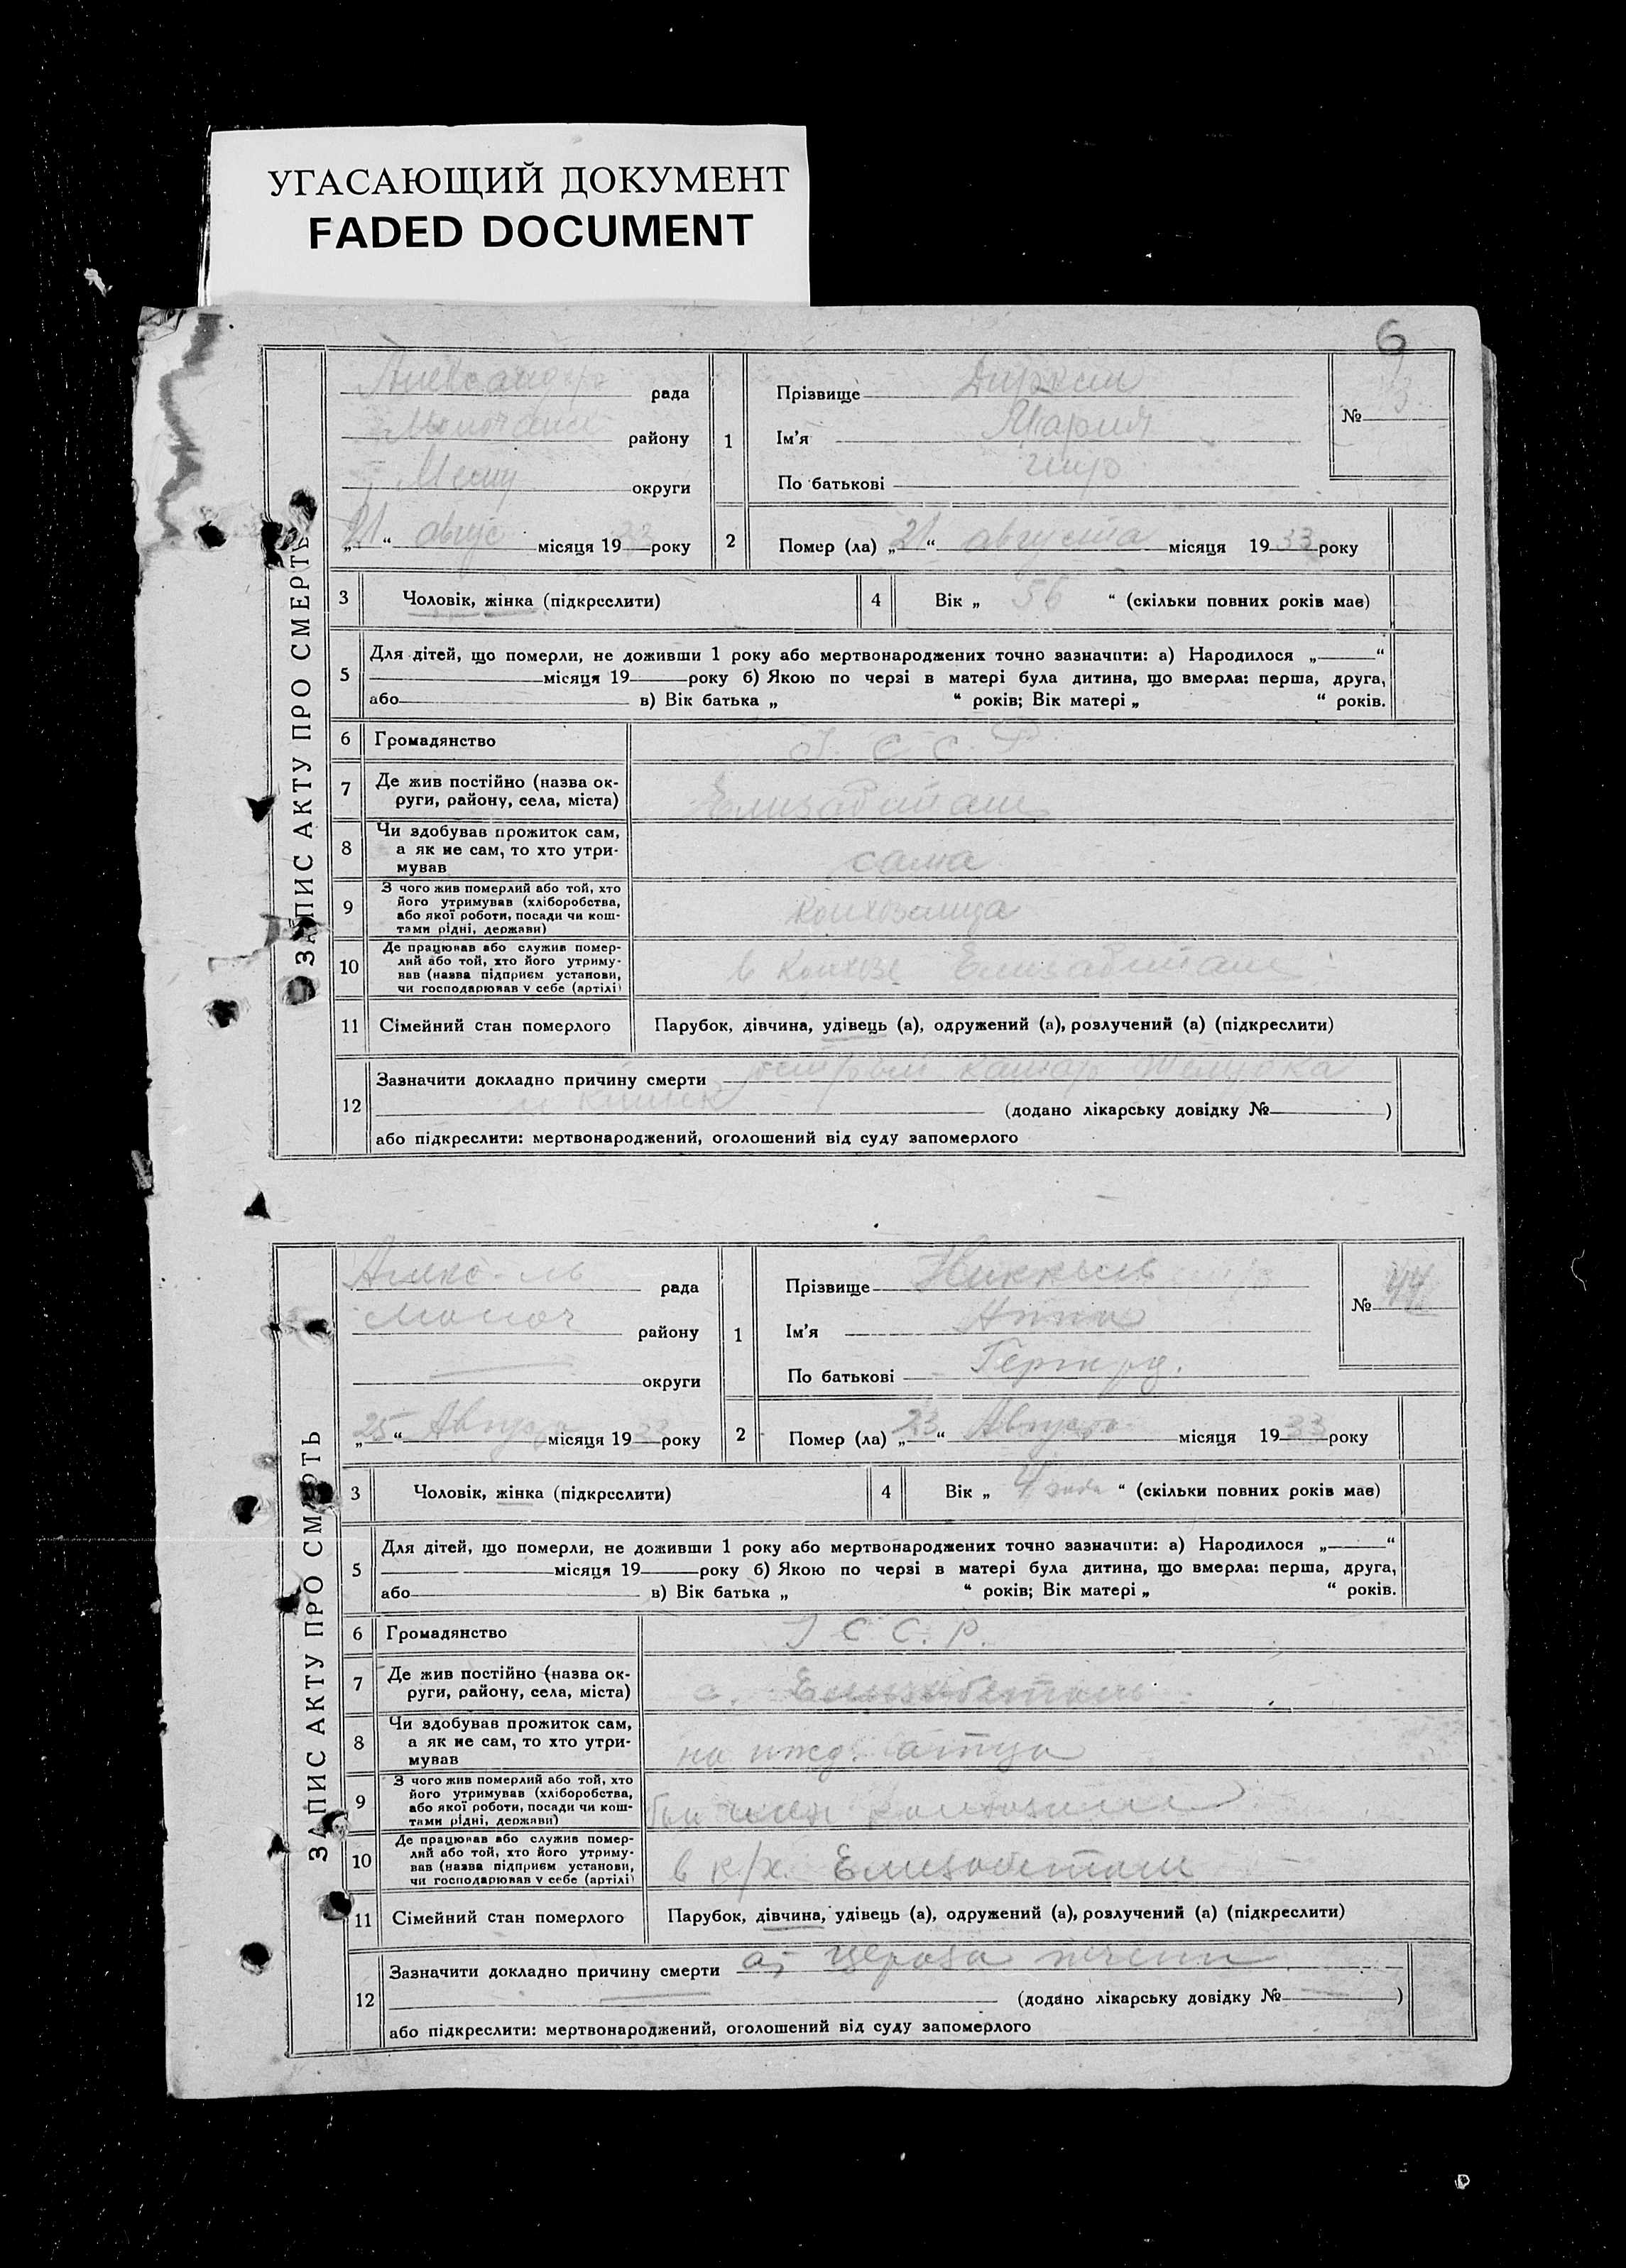 УГАСАЮЩИЙ ДОКУМЕНТ
FADED DOCUMENT
6
ЗАПИС АКТУ ПРО СМЕРТЬ
Александр рада
району
округи
„21“ авгус місяця 1933 року
1
Прізвище Дирксен
Ім'я Мария
По батькові
№ 3
2
Помер (ла) „21“ августа місяця 1933 року
3
Чоловік, жінка (підкреслити)
4
Вік „ 56 “ (скільки повних років має)
5
Для дітей, що померли, не доживши 1 року або мертвонароджених точно зазначити: а) Народилося „ “
місяця 19 року б) Якою по черзі в матері була дитина, що вмерла: перша, друга,
або в) Вік батька „ “ років; Вік матері „ “ років.
6
Громадянство С. С. Р.
7
Де жив постійно (назва ок-
руги, району, села, міста)
8
Чи здобував прожиток сам,
а як не сам, то хто утри-
мував
сама
9
З чого жив померлий або той, хто
його утримував (хліборобства,
або якої роботи, посади чи кош-
тами рідні, держави)
колхозница
10
Де працював або служив помер-
лий або той, хто його утриму-
вав (назва підприєм установи,
чи господарював у себе (артілі)
в колхозе
11
Сімейний стан померлого
Парубок, дівчина, удівець (а), одружений (а), розлучений (а) (підкреслити)
12
Зазначити докладно причину смерти острый катар желудка
и кишек (додано лікарську довідку № )
або підкреслити: мертвонароджений, оголошений від суду запомерлого
ЗАПИС АКТУ ПРО СМЕРТЬ
рада
Молоч району
округи
„25“ Августа місяця 1933 року
1
Прізвище Никкель
Ім'я Анна
По батькові Герград.
№ 44
2
Помер (ла) „23“ Августа місяця 1933 року
3
Чоловік, жінка (підкреслити)
4
Вік „ 4 года “ (скільки повних років має)
5
Для дітей, що померли, не доживши 1 року або мертвонароджених точно зазначити: а) Народилося „ “
місяця 19 року б) Якою по черзі в матері була дитина, що вмерла: перша, друга,
або в) Вік батька „ “ років; Вік матері „ “ років.
6
Громадянство С С. Р.
7
Де жив постійно (назва ок-
руги, району, села, міста)
с. Елизабетталь
8
Чи здобував прожиток сам,
а як не сам, то хто утри-
мував
на ижд. отца
9
З чого жив померлий або той, хто
його утримував (хліборобства,
або якої роботи, посади чи кош-
тами рідні, держави)
10
Де працював або служив помер-
лий або той, хто його утриму-
вав (назва підприєм установи,
чи господарював у себе (артілі)
в к/х. Елизабеттали
11
Сімейний стан померлого
Парубок, дівчина, удівець (а), одружений (а), розлучений (а) (підкреслити)
12
Зазначити докладно причину смерти печени
(додано лікарську довідку № )
або підкреслити: мертвонароджений, оголошений від суду запомерлого